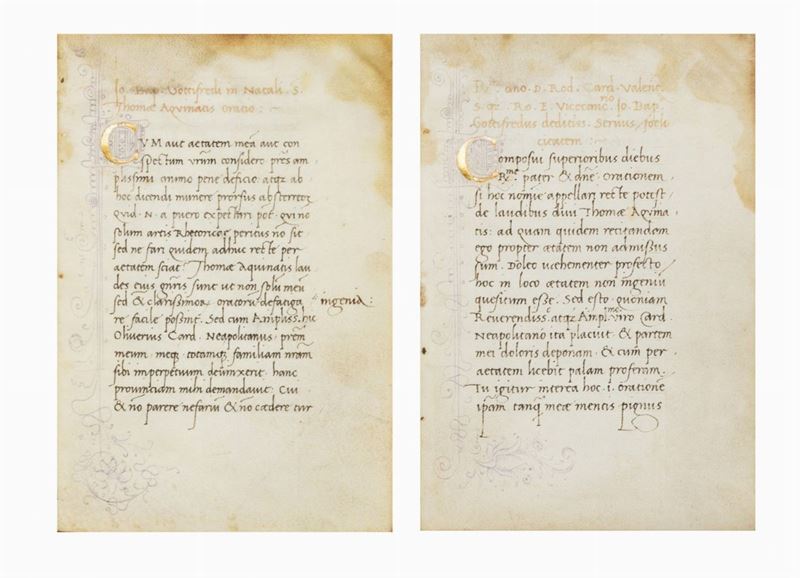 Jo. Bap. Gottifredi in Natali S.
Thomæ Aqvinatis Oratio :
CVM aut aetatem meā aut con
spectum vr̄um considero præs am
passimi animo pene deficio atqz ab
hoc dicendi munere prorsus absterreor
Quid . N . a puero expectari pot qui nō
solum artis Rhetorices peritus nō sit
sed ne fari quidem adhuc recte per
aetatem sciat : Thomæ Aquinatis lau
des eius gn̄ris sunt ut non solū meū
sed & clarissimoꝝ oratorū defatiga ingenia :
re facile possint . Sed cum Ampliss. hic
Oliuerius Card. Neapolitanus prēm
meum meqꝫ totamqꝫ familiam nr̄am
sibi imperpetuum deuinxerit hanc
prouinciam mihi demandauit . Cui
& nō parere nefariū & nō cædere tur
Rmo ano D. Rod. Card. Valenc.
S. qz Ro. E. Vicecanc.rio Jo. Bap.
Gottifredus dediti.s Seruus foeli
citatem :
Composui superioribus diebus
R.me pater & dn̄e orationem
si hoc nomīe appellari recte potest
de laudibus diui Thomæ Aquina
tis : ad quam quidem recitandam
ego propter ætatem non admissus
sum . Doleo uehementer profecto
hoc in loco ætatem non ingeniū
quesitum esse . Sed esto quoniam
Reuerendiss.o atqz Ampl.mo viro Card .
Neapolitano ita placuit & partem
mei doloris deponam & cum per
aetatem licebit palam proferam .
Tu igitur interea hoc . i . oratione
ip̄am tanq̄ meæ mentis pignus